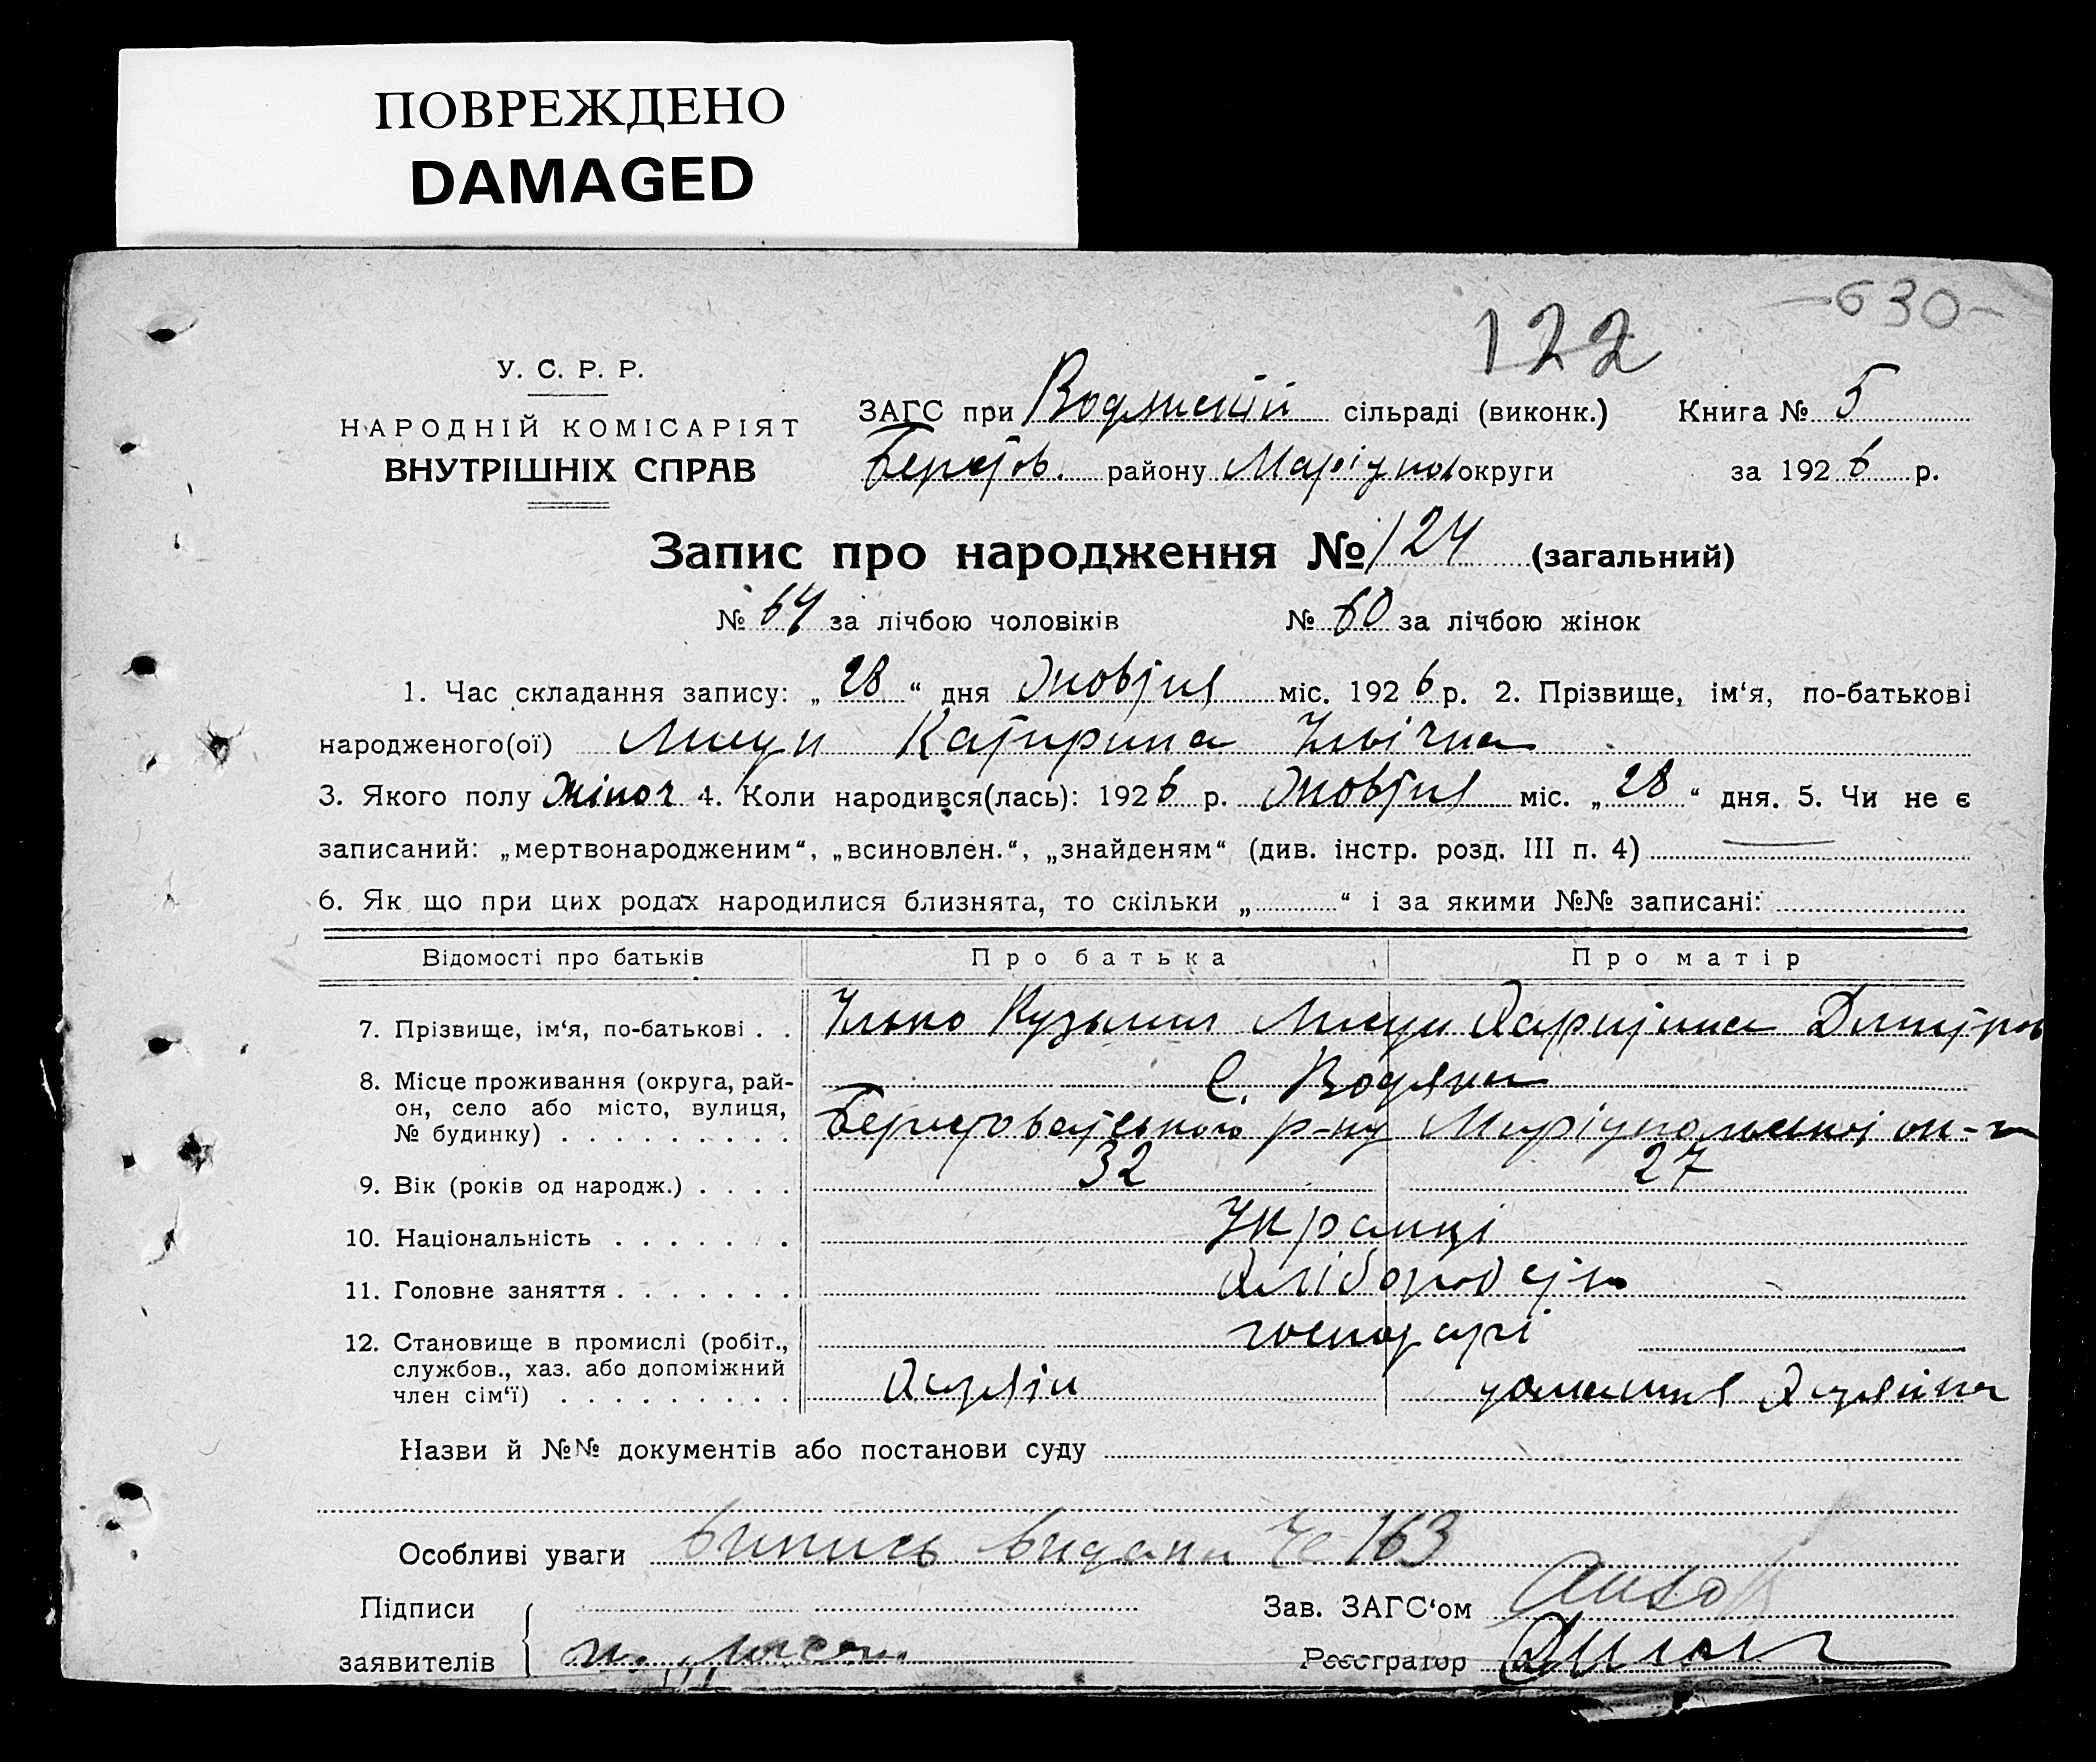 ПОВРЕЖДЕНО
DAMAGED
-630-
122
У. С. Р. Р.
НАРОДНІЙ КОМІСАРІЯТ
ВНУТРІШНІХ СПРАВ
ЗАГС при Водянській сільраді (виконк.) Книга № 5
Берестов. району Маріупол округи за 1926 р.
Запис про народження № 124 (загальний)
№ 64 за лічбою чоловіків № 60 за лічбою жінок
1. Час складання запису: „28“ дня Жовтня міс. 1926 р. 2. Прізвище, ім‘я, по-батькові
народженого(ої) Катирина Ільічна
3. Якого полу Жіноч 4. Коли народився(лась): 1926 р. Жовтня міс. „28“ дня. 5. Чи не є
записаний: „мертвонародженим“, „всиновлен.“, „знайденям“ (див. інстр. розд. III п. 4)
6. Як що при цих родах народилися близнята, то скільки „ “ і за якими №№ записані:
Відомості про батьків Про батька Про матір
7. Прізвище, ім‘я, по-батькові . . Ілько Кузьмич Харитина Дмитров
8. Місце проживання (округа, рай- с. Водяна
он, село або місто, вулиця, Берестоватського р-ну Маріупольської ок-ги
№ будинку) . . . . . . . . .
9. Вік (років од народж.) . . . . 32 27
10. Національність . . . . . . Українці
11. Головне заняття . . . . . . . Хліборобст
12. Становище в промислі (робіт., господарі
службов., хаз. або допоміжний
член сім‘ї) . . . . . . . . . Хазяїн домашня Хазяйка
Назви й №№ документів або постанови суду
Особливі уваги Випись видана № 163
Підписи Зав. ЗАГС‘ом
заявителів Реєстратор